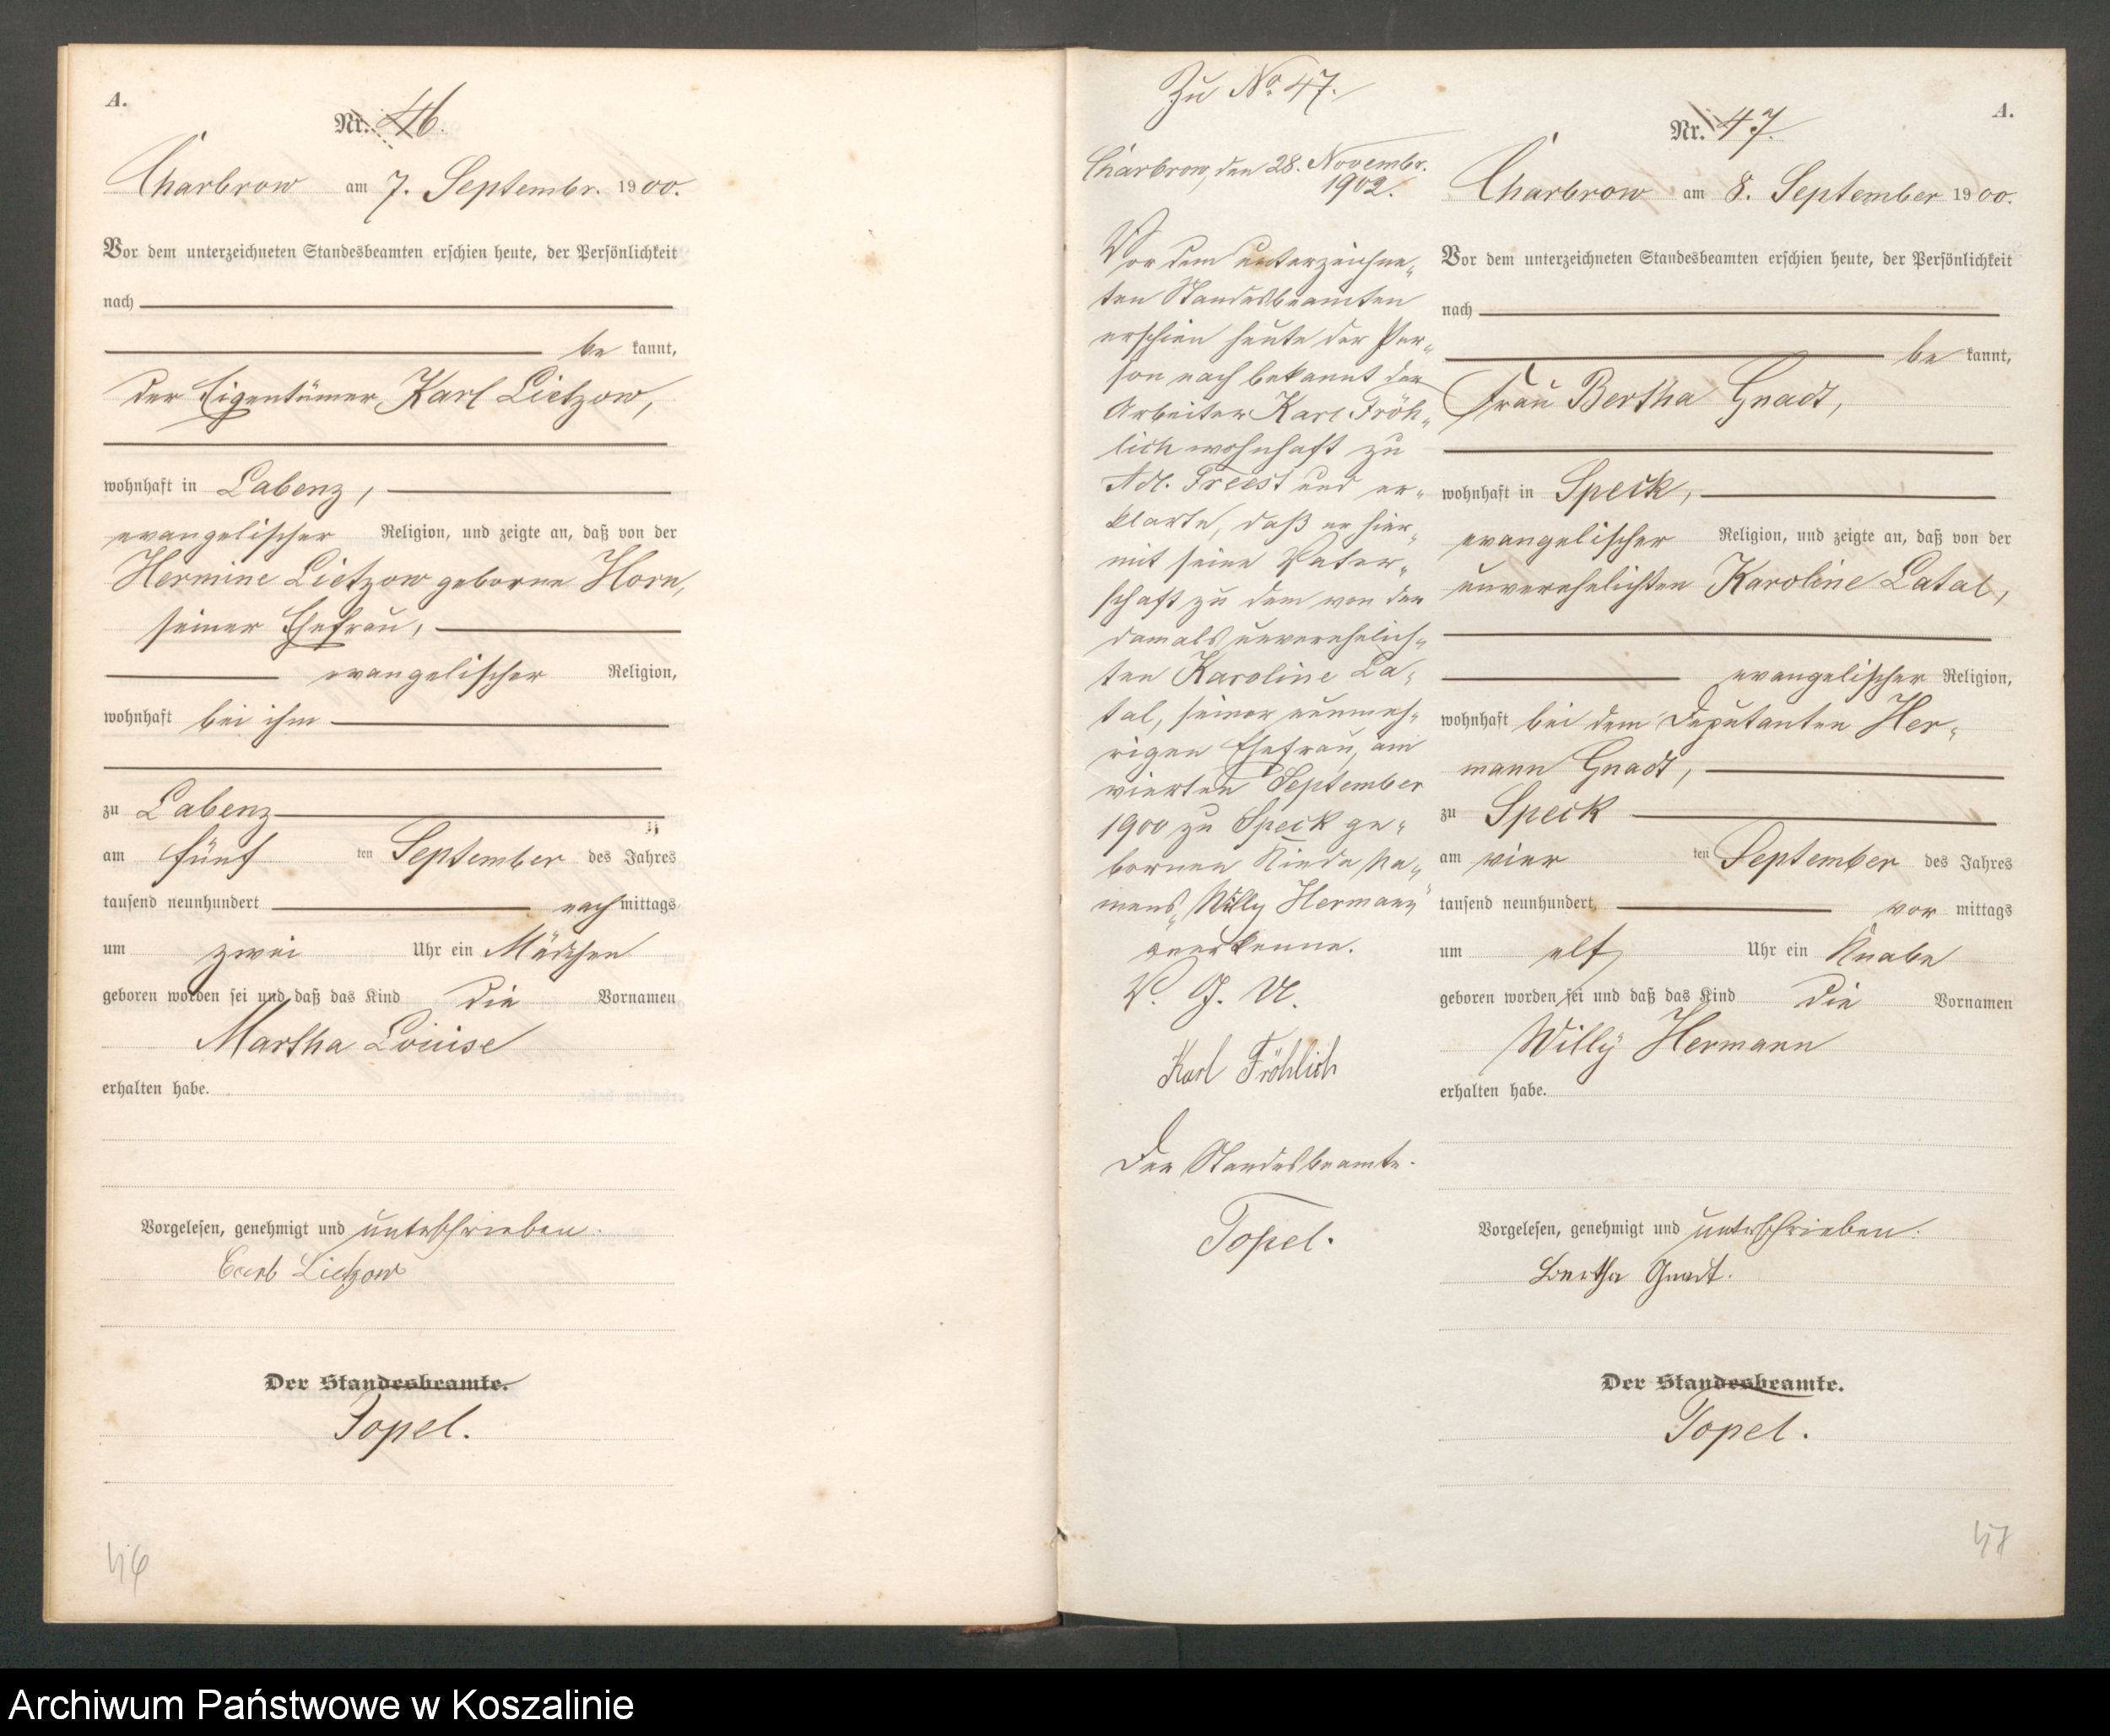 A.
Nr. 46.
Charbrow am 7. Septembr. 1900.
Vor dem unterzeichneten Standesbeamten erschien heute, der Persönlichkeit
nach
be kannt,
der Eigentümer Karl Lietzow,
wohnhaft in Labenz,
evangelischer Religion, und zeigte an, daß von der
Hermine Lietzow geborne Horn,
seiner Ehefrau,
evangelischer Religion,
wohnhaft bei ihm
zu Labenz
am fünf ten September des Jahres
tausend neunhundert nach mittags
um zwei Uhr ein Mädchen
geboren worden sei und daß das Kind die Vornamen
Martha Louise
erhalten habe.
Vorgelesen, genehmigt und unterschrieben.
Carl Lietzow
Der Standesbeamte.
Topel.
46
Zu No. 47.
Charbrow, den 28. Novembr.
1902.
Vor dem unterzeichne-
ten Standesbeamten
erschien heute der Per-
son nach bekannt der
Arbeiter Karl Fröh-
lich wohnhaft zu
Adl. Freest und er-
klärte, daß er hier-
mit seine Vater-
schaft zu dem von der
damals unverehelich-
ten Karoline La-
tal, seiner nunmeh-
rigen Ehefrau, am
vierten September
1900 zu Speck ge-
bornen Kinde Na-
mens „Willy Hermann“
anerkenne.
V. G. U.
Karl Fröhlich
Der Standesbeamte.
Topel.
A.
Nr. 47.
Charbrow am 8. September 1900.
Vor dem unterzeichneten Standesbeamten erschien heute, der Persönlichkeit
nach
be kannt,
Frau Bertha Gnadt,
wohnhaft in Speck,
evangelischer Religion, und zeigte an, daß von der
unverehelichten Karoline Latal,
evangelischer Religion,
wohnhaft bei dem Deputanten Her-
mann Gnadt,
zu Speck
am vier ten September des Jahres
tausend neunhundert vor mittags
um elf Uhr ein Knabe
geboren worden sei und daß das Kind die Vornamen
Willy Hermann
erhalten habe.
Vorgelesen, genehmigt und unterschrieben.
Bertha Gnadt.
Der Standesbeamte.
Topel.
47
Archiwum Państwowe w Koszalinie